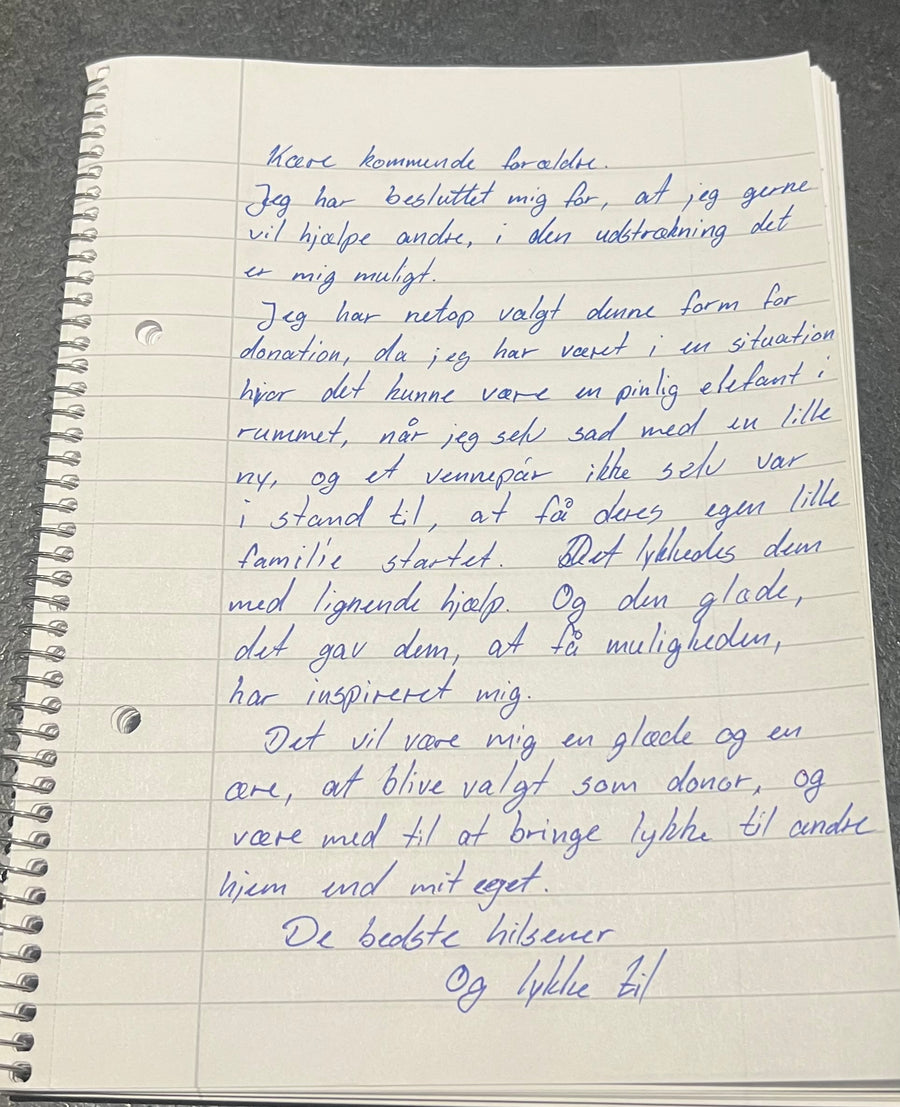 Kære kommende forældre.
Jeg har besluttet mig for, at jeg gerne
vil hjælpe andre, i den udstrækning det
er mig muligt.
Jeg har netop valgt denne form for
donation, da jeg har været i en situation
hvor det kunne være en pinlig elefant i
rummet, når jeg selv sad med en lille
ny, og et vennepar ikke selv var
i stand til, at få deres egen lille
familie startet. Det lykkedes dem
med lignende hjælp. Og den glæde,
det gav dem, at få muligheden,
har inspireret mig.
Det vil være mig en glæde og en
ære, at blive valgt som donor, og
være med til at bringe lykke til andre
hjem end mit eget.
De bedste hilsener
Og lykke til